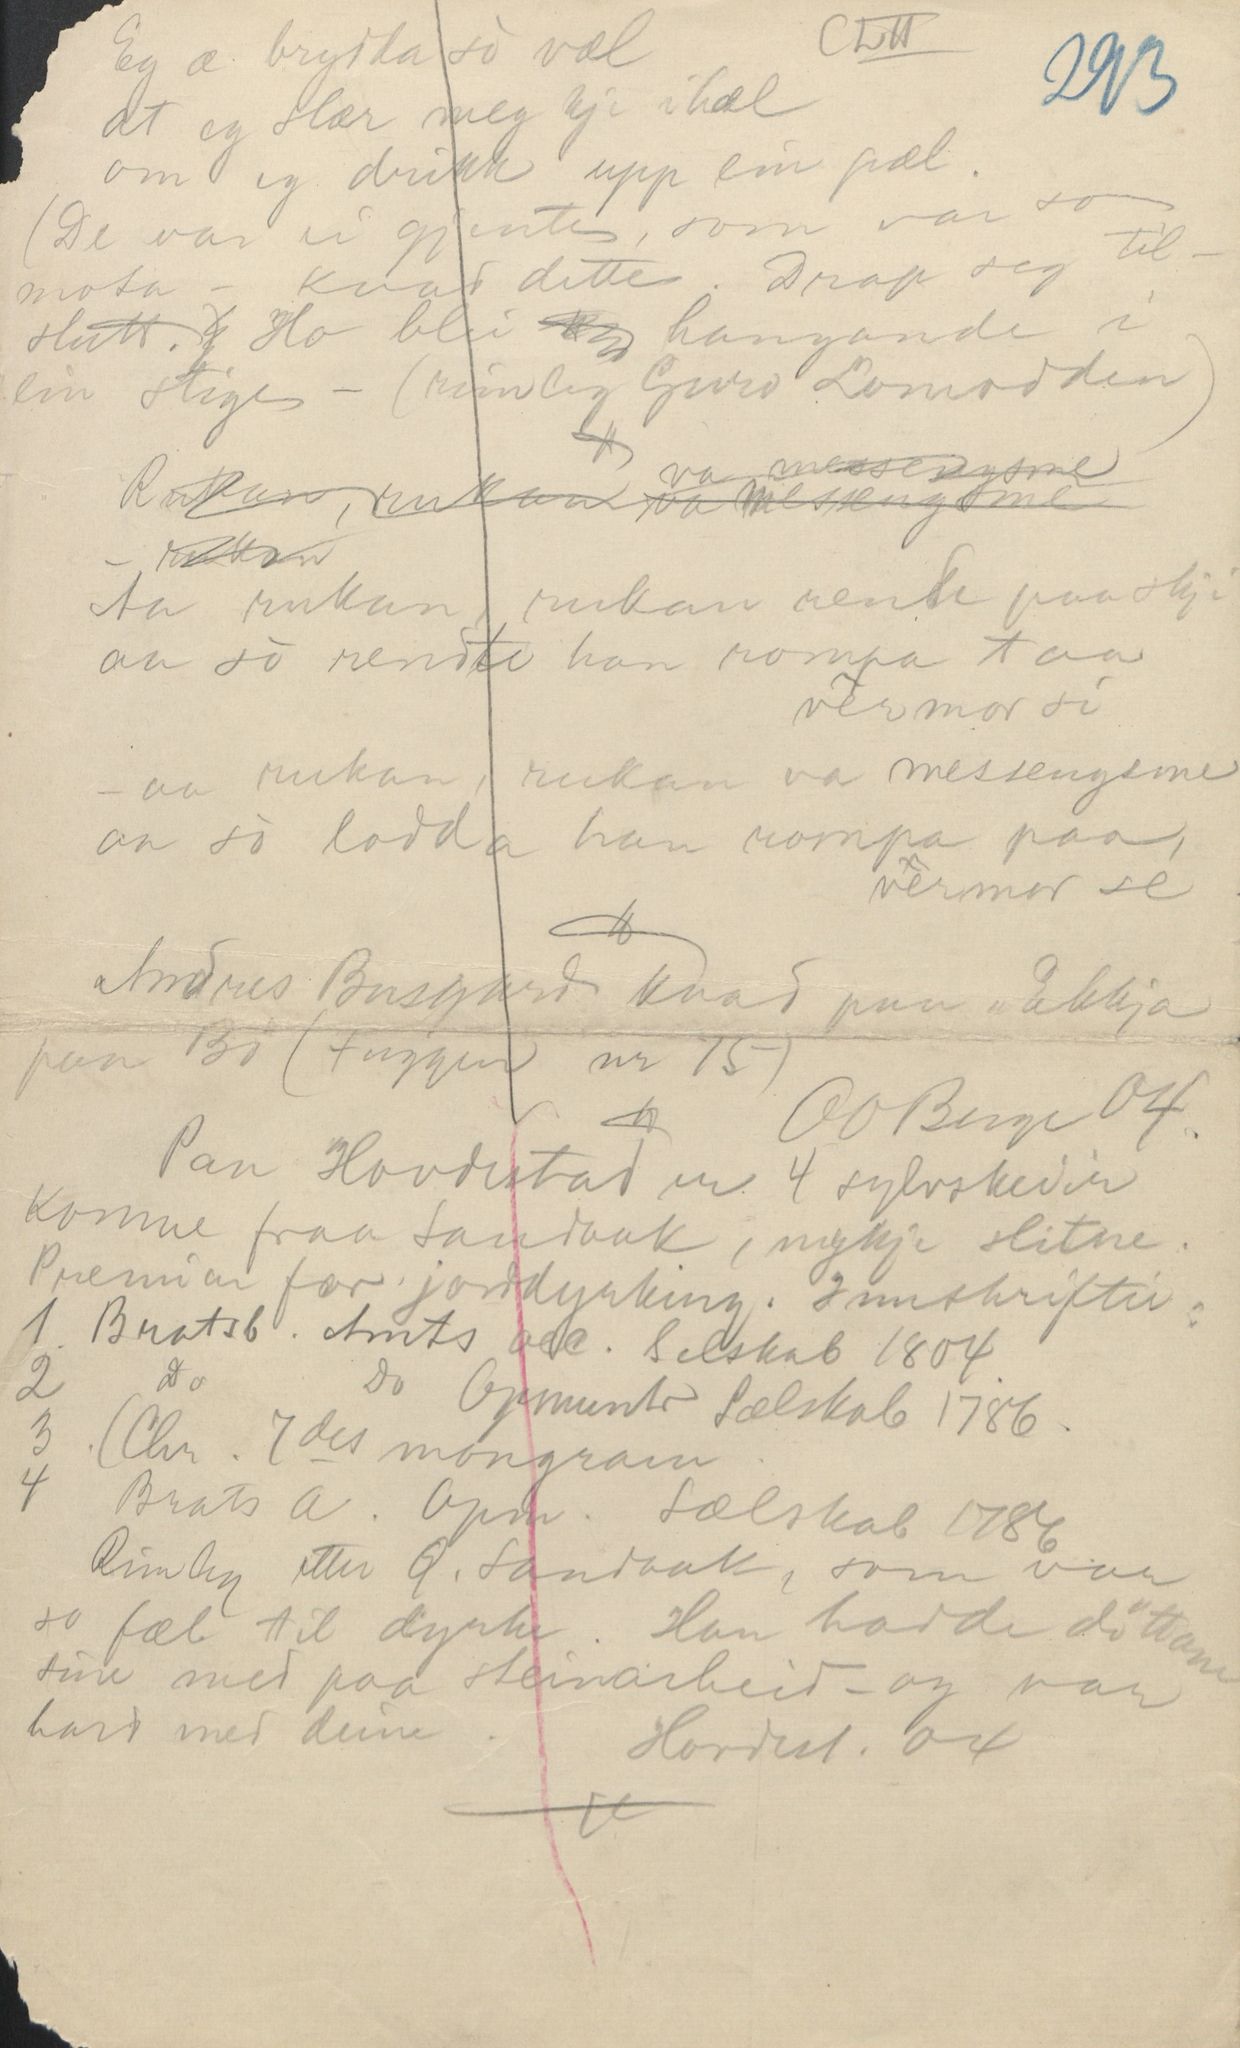 293
Eg æ brydda så væl
at eg slær meg kje ihæl
om eg drikk upp ein pæl.
(De var ei gjente, som var so
mota - kvad dette. Drap seg til-
slutt. Ho blei hangande i
ein stige - (rimleg Guro Lomodden)
Rukan, rukan va messengsme
va messengsme
- rukan
Aa rukan, rukan rende paa skji
aa so rendte han rompa taa
vèrmor si
- aa rukan, rukan va messengsme
aa so lodda han rompa paa,
vèrmor se
Andres Busgard kvad paa "Ekkja
paa Bö (Fuggen nr 75)
O O Berge 04.
Paa Hovdestad er 4 sylvskeier
komne fraa Sandaak, mykje slitne.
Premiar for jorddyrking. Innskrifter:
1. Bratsb. Amts Selskab 1804
2 Do Do Opmuntr Sælskab 1786.
3. (Chr. 7des mongram.
4 Brats A. Opm. Sælskab 1786
Rimleg etter Q. Sandaak, som var
so fæl til dyrke. Han hadde döttane
sine med paa steinarbeid - og var
hard med deim. Hovdest. 04